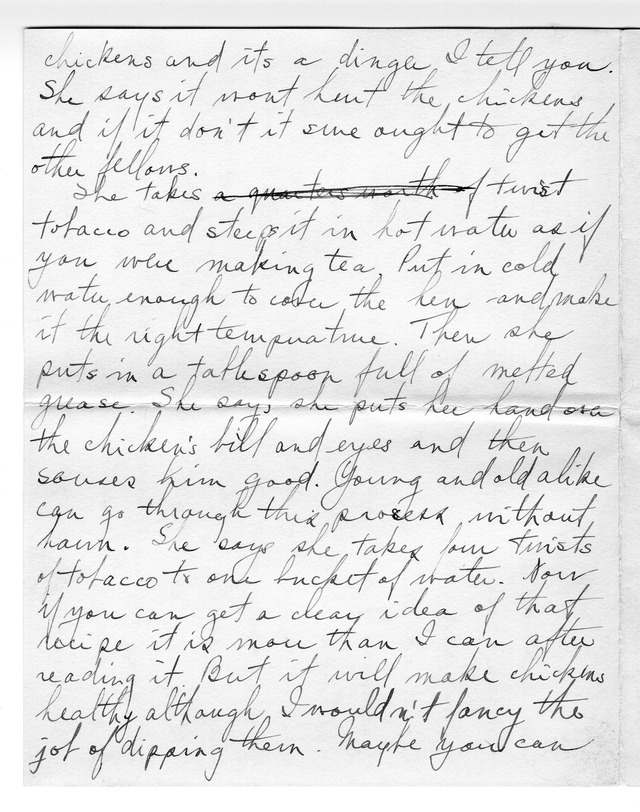 chickens and its a dinger I tell you.
She says it wont hurt the chickens
and if it don't it sure ought to get the
other fellows.
She takes a quarters worth of twist
tobacco and steeps it in hot water as if
you were making tea. Put in cold
water enough to cover the hen and make
it the right temperature. Then she
puts in a tablespoon full of melted
grease. She says she puts her hand over
the chicken's bill and eyes and then
souses him good. Young and old alike
can go through this process without
harm. She says she takes four twists
of tobacco to one bucket of water. Now
if you can get a clear idea of that
recipe it is more than I can after
reading it. But it will make chickens
healthy although I wouldn't fancy the
job of dipping them. Maybe you can